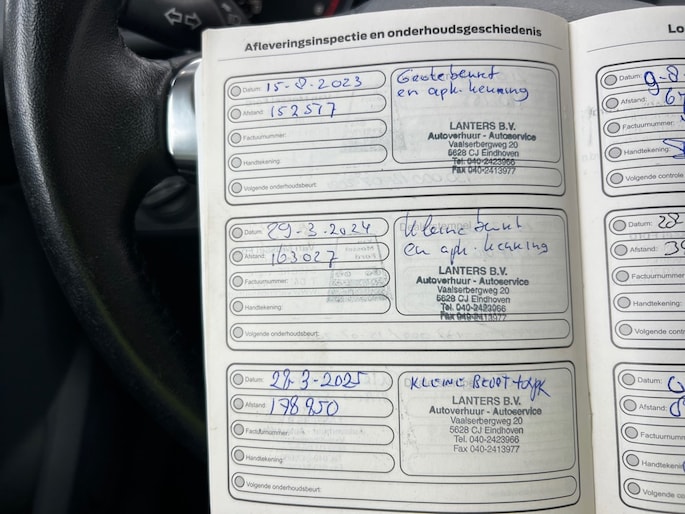 Afleveringsinspectie en onderhoudsgeschiedenis
Datum: 15-8-2023
Afstand: 152517
Factuurnummer:
Handtekening:
Volgende onderhoudsbeurt:
Grote beurt
en apk. keuring
LANTERS B.V.
Autoverhuur - Autoservice
Vaalserbergweg 20
5628 CJ Eindhoven
Tel. 040-2423966
Fax 040-2413977
Datum: 29-3-2024
Afstand: 163027
Factuurnummer:
Handtekening:
Volgende onderhoudsbeurt:
Kleine beurt
en apk. keuring
LANTERS B.V.
Autoverhuur - Autoservice
Vaalserbergweg 20
5628 CJ Eindhoven
Tel. 040-2423966
Fax 040-2413977
Datum: 28-3-2025
Afstand: 178950
Factuurnummer:
Handtekening:
Volgende onderhoudsbeurt:
KLEINE BEURT + apk
LANTERS B.V.
Autoverhuur - Autoservice
Vaalserbergweg 20
5628 CJ Eindhoven
Tel. 040-2423966
Fax 040-2413977
Lo
Datum: 9-8-
Afstand:
Factuurnummer:
Handtekening:
Volgende controle
Datum:
Afstand:
Factuurnummer
Handtekening:
Volgende contr
Datum:
Afstand:
Factuurnumm
Handtekenin
Volgende co